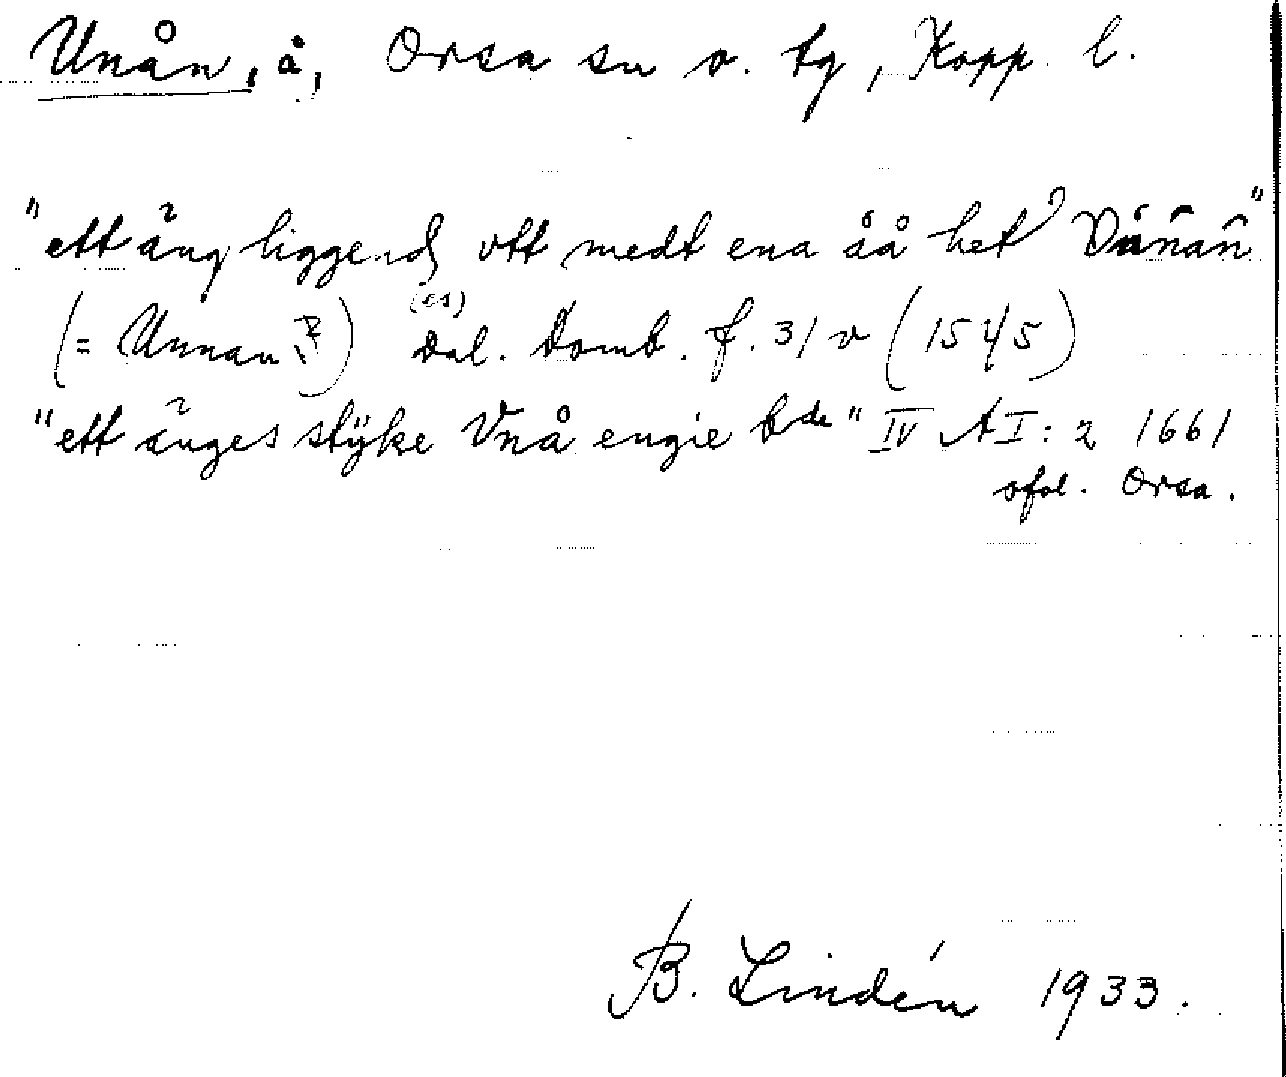 Unån, å, Orsa sn o. tg, Kopp. l.
"ett äng liggend vtt medt ena åå het Vånan"
(= Unnan ?) Dal. Domb. f. 31 v (1545)
"ett änges stÿke Vnå engie bde" IV AI: 2 1661
ofol. Orsa.
B. Lindén 1933.